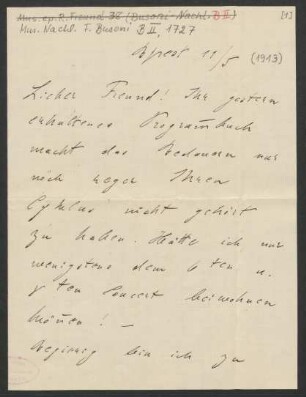 Mus. ep. R. Freund 38 (Busoni-Nachl. B II)
Mus. Nachl. F. Busoni B II, 1727
Bpest 11/5 (1913)
Lieber Freund! Ihr gestern
erhaltenes Programmbuch
macht das Bedauern nur
noch reger Ihren
Cyklus nicht gehört
zu haben. Hätte ich nur
wenigstens dem 6ten u.
7ten Concert beiwohnen
können! —
Begierig bin ich zu